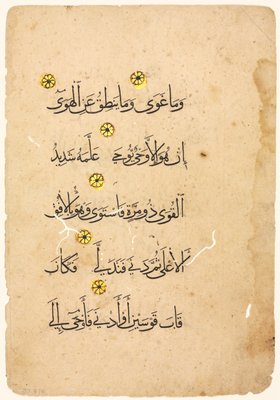 وما غوى وما ينطق عن الهوى
إن هو إلا وحي يوحى علمه شديد
القوى ذو مرة فاستوى وهو بالأفق
الأعلى ثم دنى فتدلى فكان
قاب قوسين أو أدنى فأوحى إلى